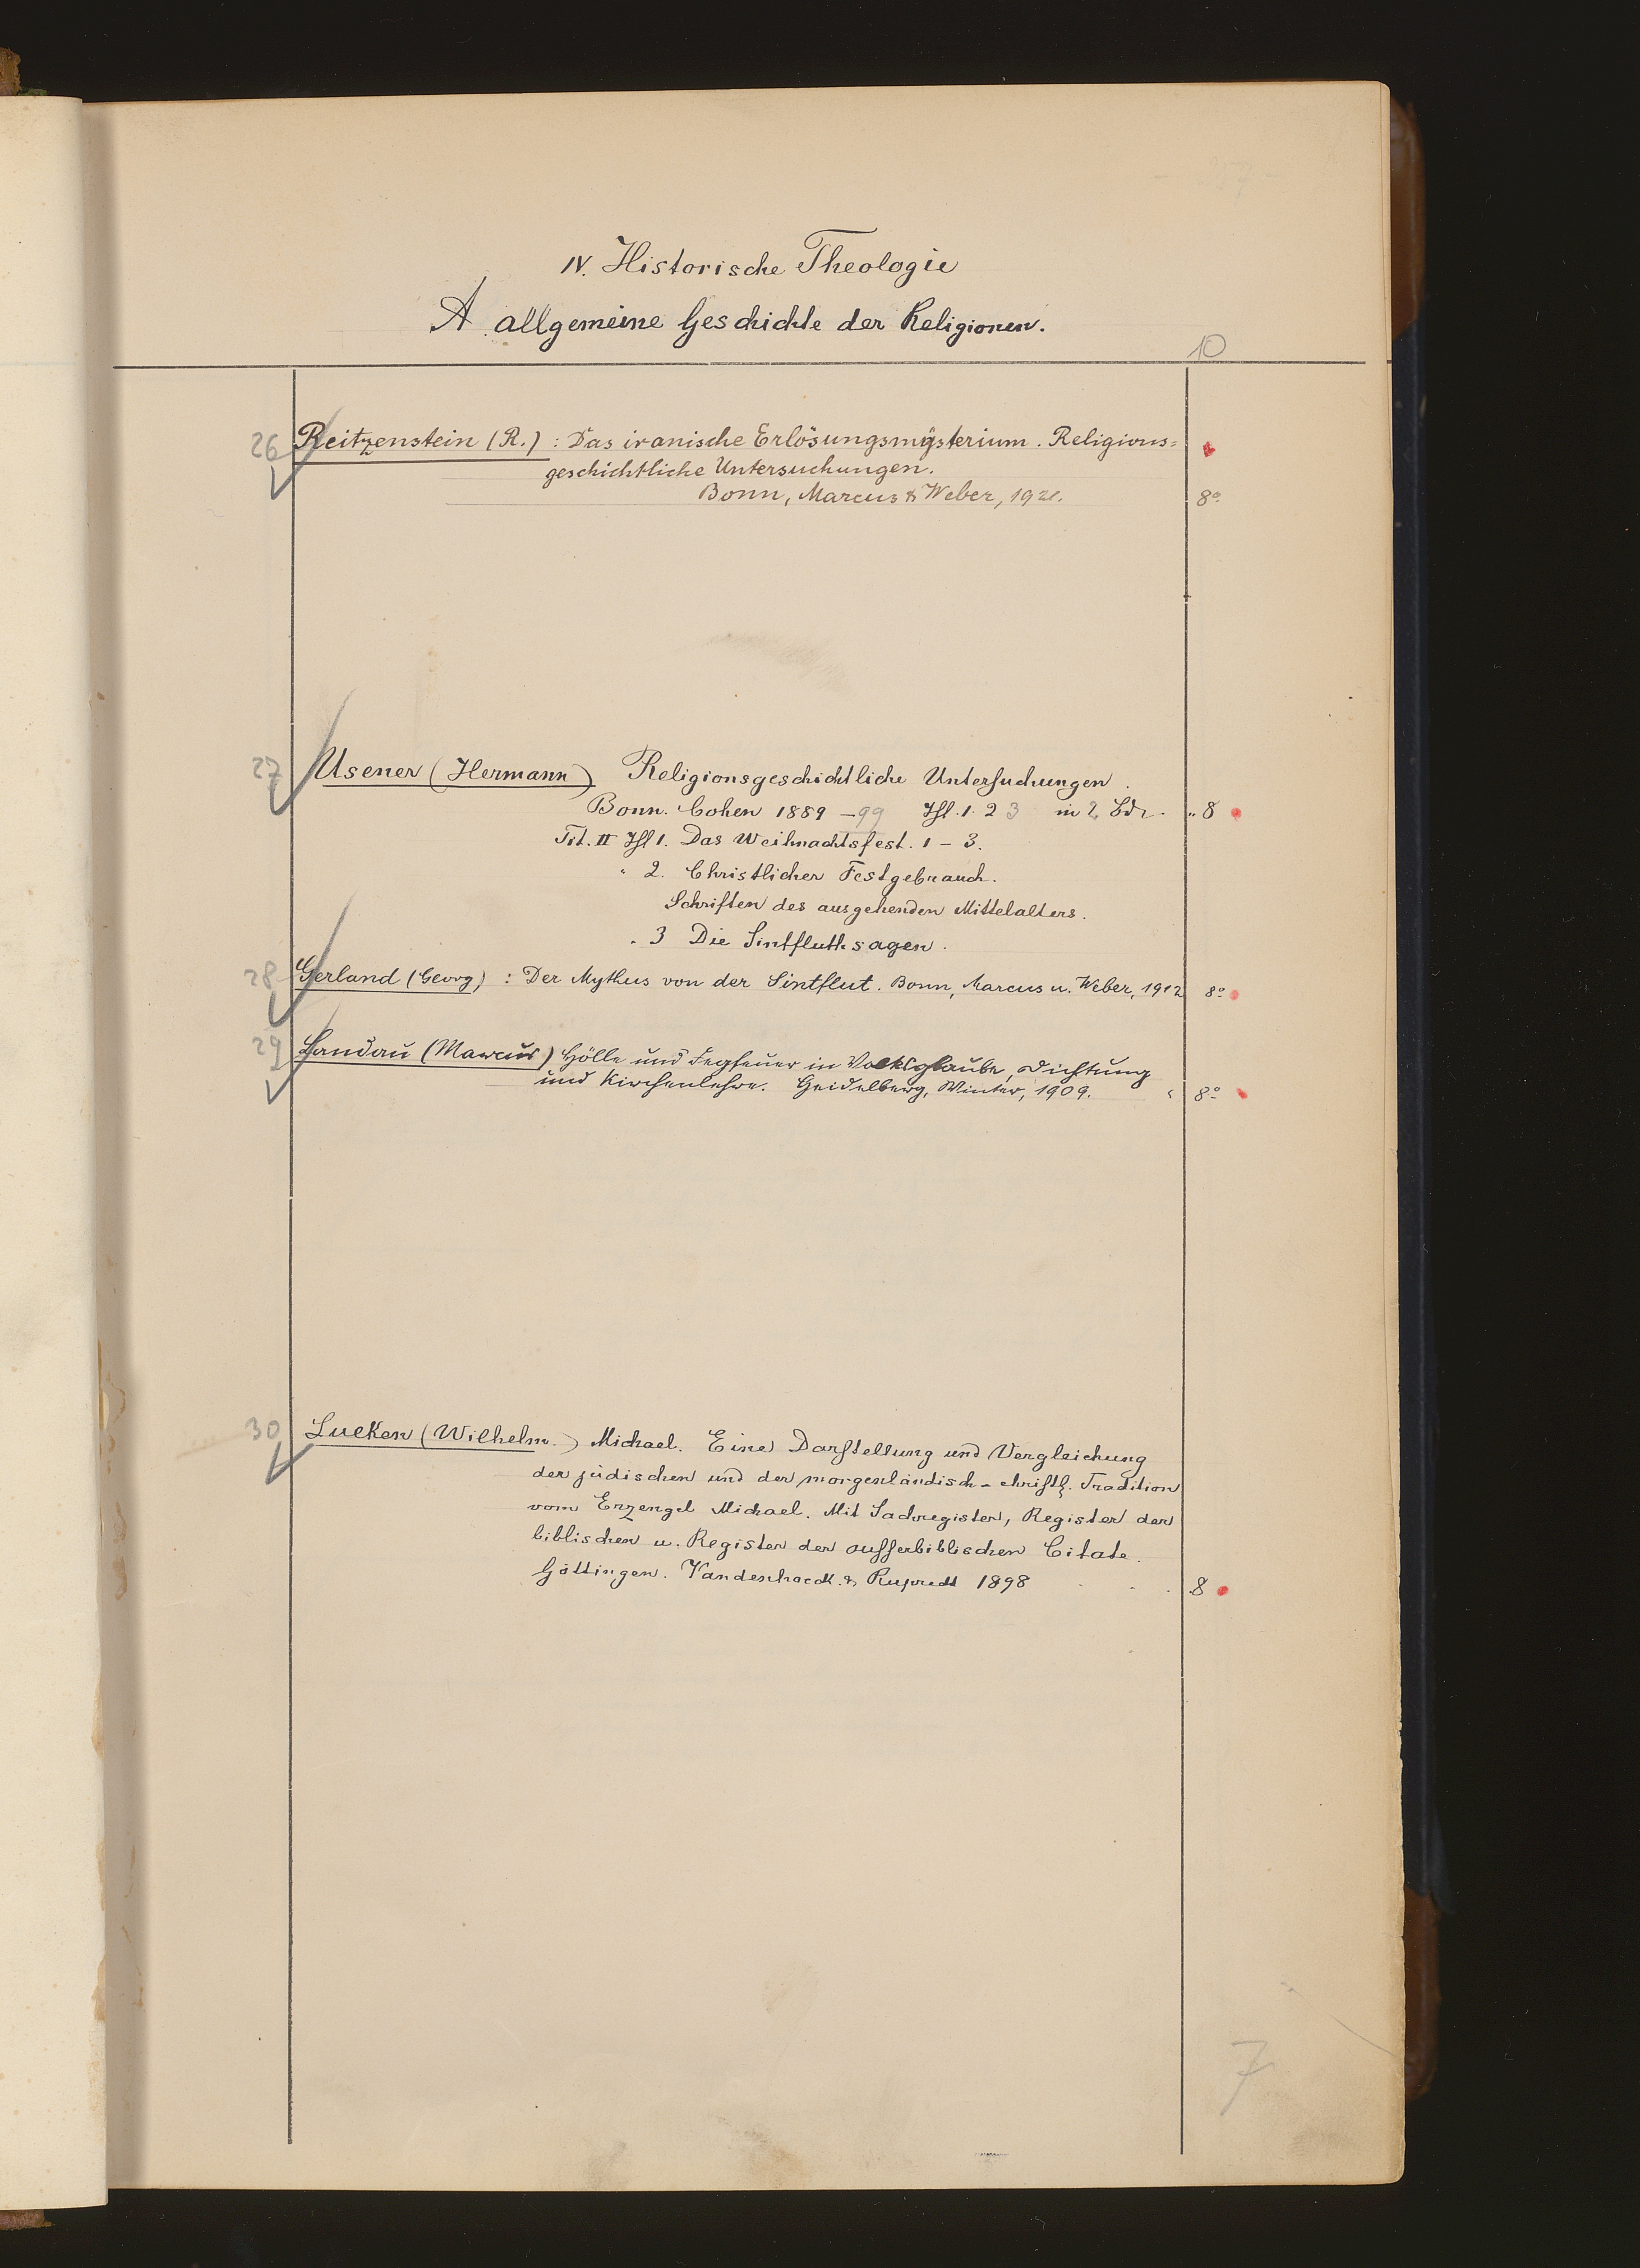 IV. Historische Theologie
A allgemeine Geschichte der Religionen.
10
26 Reitzenstein (R.) : Das iranische Erlösungsmysterium. Religions=
geschichtliche Untersuchungen.
Bonn, Marcus & Weber, 1921. 8°
27 Usener (Hermann) Religionsgeschichtliche Untersuchungen.
Bonn. Cohen 1889 - 99 Thl. 1. 2 3 in 2 Bdn. 8
Tit. II Thl 1. Das Weihnachtsfest. 1 - 3.
" 2. Christlicher Festgebrauch.
Schriften des ausgehenden Mittelalters.
" 3 Die Sintfluthsagen.
28 Gerland (Georg) : Der Mythus von der Sintflut. Bonn, Marcus u. Weber, 1912 8°
29 Landau (Marcus) Hölle und Fegfeuer in Volksglaube, Dichtung
und Kirchenlehre. Heidelberg, Winter, 1909. 8°
30 Lueken (Wilhelm.) Michael. Eine Darstellung und Vergleichung
der jüdischen und der morgenländisch-christl. Tradition
vom Erzengel Michael. Mit Sachregister, Register der
biblischen u. Register der ausserbiblischen Citate.
Göttingen. Vandenhoeck & Ruprecht 1898 . . . 8
7